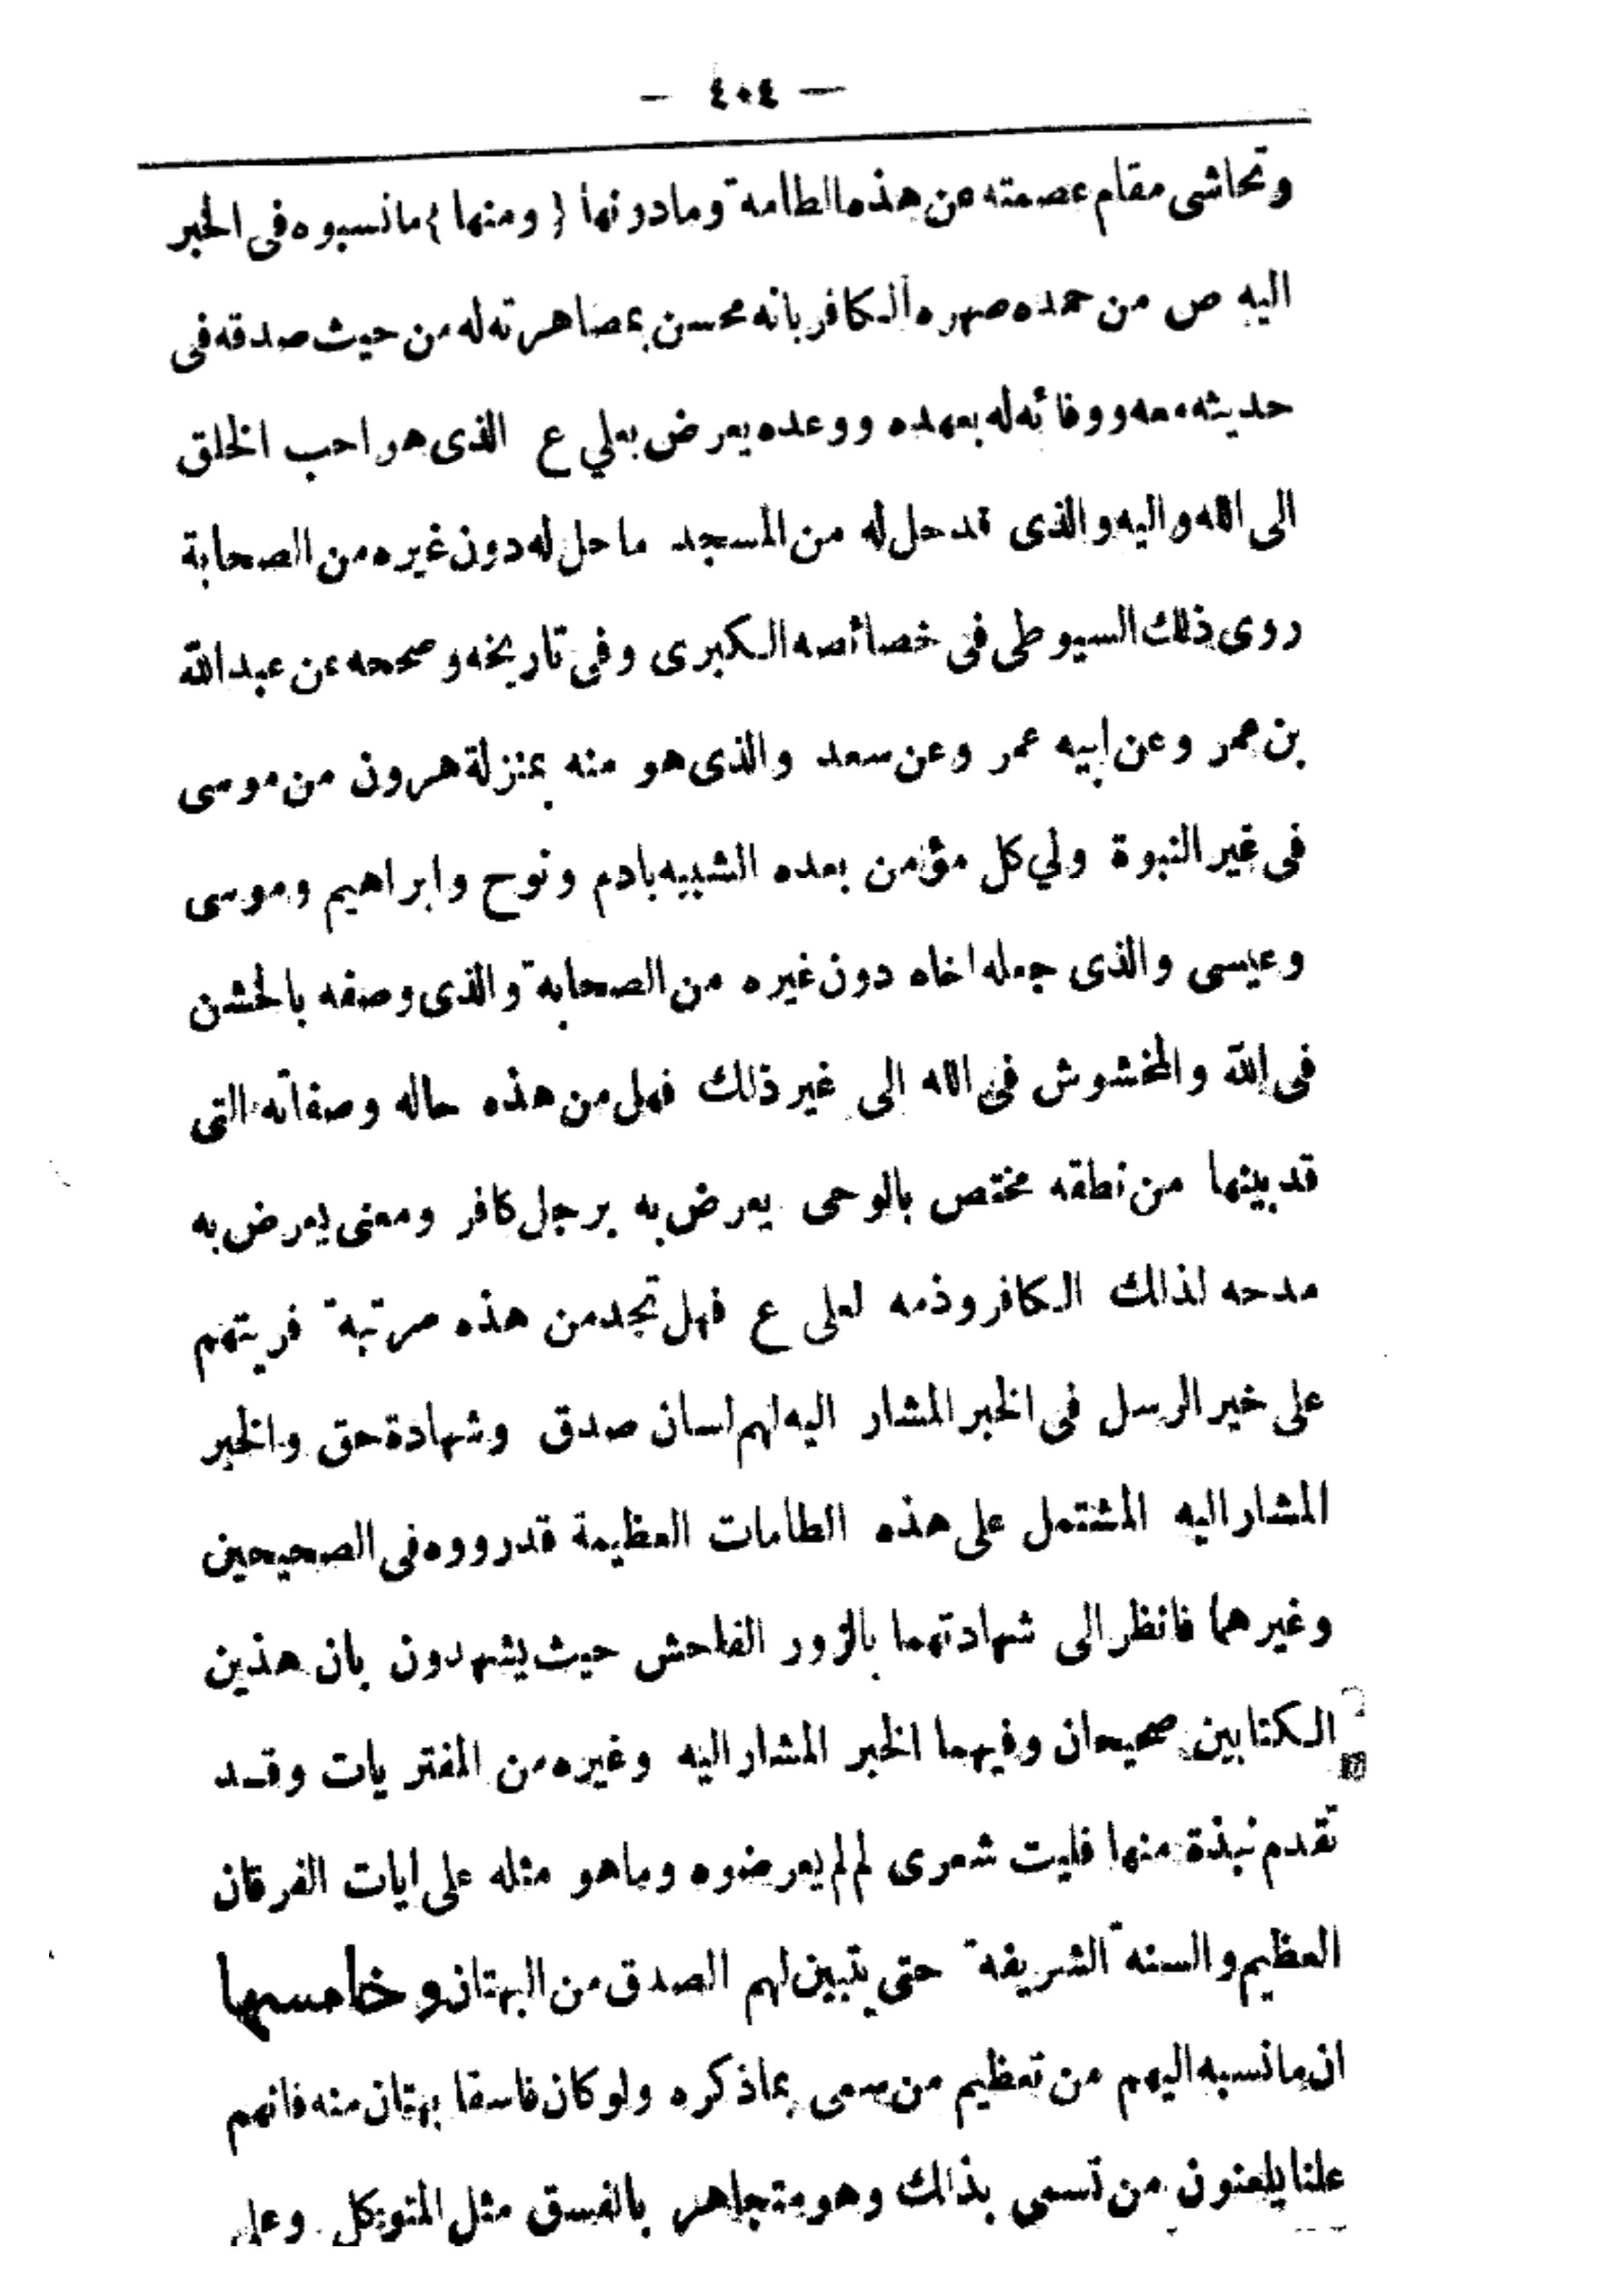 — ٤٠٤ —
وتحاشى مقام عصمته عن هذه الطامة وما دونها { ومنها } ما نسبوه فى الخبر
اليه ص من حمده صهره الكافر بانه محسن بمصاهرته له من حيث صدقه فى
حديثه معه ووفائه له بعهده ووعده يعرض بعلي ع الذى هو احب الخلق
الى الله واليه والذى قد حل له من المسجد ما حل له دون غيره من الصحابة
روى ذلك السيوطى فى خصائصه الكبرى وفى تاريخه وصححه عن عبد الله
بن عمر وعن ابيه عمر وعن سعد والذى هو منه بمنزلة هرون من موسى
فى غير النبوة ولي كل مؤمن بعده الشبيه بادم ونوح وابراهيم وموسى
وعيسى والذى جعله اخاه دون غيره من الصحابة والذى وصفه بالخشن
فى الله والمخشوش فى الله الى غير ذلك فهل من هذه حاله وصفاته التى
قد بينها من نطقه مختص بالوحى يعرض به برجل كافر ومعنى يعرض به
مدحه لذلك الكافر وذمه لعلى ع فهل تجد من هذه مرتبة فريتهم
على خير الرسل فى الخبر المشار اليه لهم لسان صدق وشهادة حق والخبر
المشار اليه المشتمل على هذه الطامات العظيمة قد رووه فى الصحيحين
وغيرهما فانظر الى شهادتهما بالزور الفاحش حيث يشهدون بان هذين
الكتابين صحيحان وفيهما الخبر المشار اليه وغيره من المفتريات وقد
تقدم نبذة منها فليت شعرى لم لم يعرضوه وما هو مثله على ايات الفرقان
العظيم والسنة الشريفة حتى يتبين لهم الصدق من البهتان وخامسها
ان ما نسبه اليهم من تعظيم من سمى بما ذكره ولو كان فاسقا بهتان منه فانهم
علنا يلعنون من تسمى بذلك وهو متجاهر بالفسق مثل المتوكل وعلى